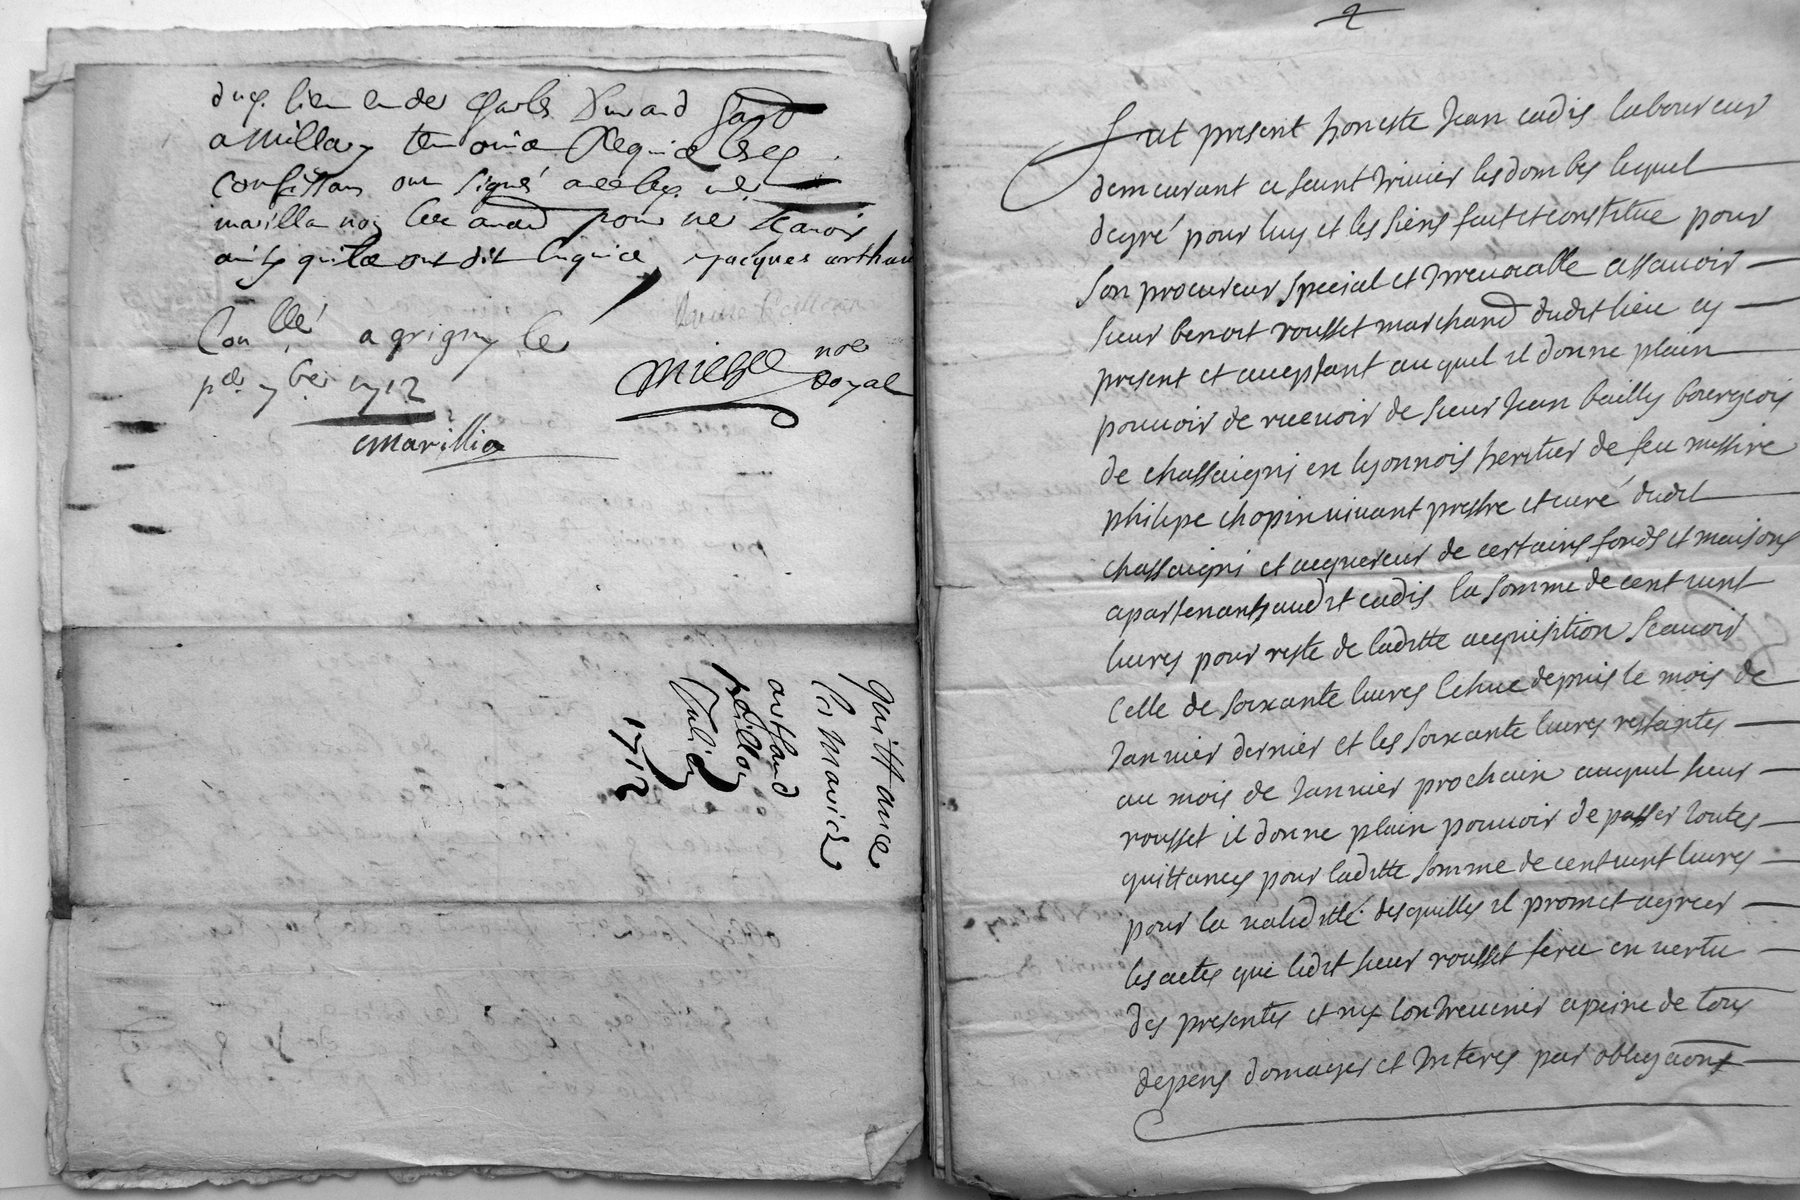 dud. lieu
a Millery
ont signé
marilla non pour ne scavoir
ainsy qu'ils ont dit enquis Jacques arthaud
Conllé a grigny le
1712
Marillia
Michel nore
Royal
quittance
arthaud
1712
2
Fut present honeste Jean cadis laboureur
demeurant a saint trivier les dombes lequel
degré pour luy et les siens fait et constitue pour
son procureur special et irrevocable assavoir
sieur benoit rousset marchand dudit lieu cy
present et acceptant auquel il donne plain
pouvoir de recevoir de sieur Jean bailly bourgeois
de chassaigni en lyonnois heritier de feu messire
philipe chopin vivant prestre et curé dudit
chassaigni et acquereur de certains fonds et maisons
apartenants audit cadis la somme de cent vint
livres pour reste de laditte acquisition scavoir
celle de soixante livres echue depuis le mois de
Janvier dernier et les soixante livres restantes
au mois de Janvier prochain auquel sieur
rousset il donne plain pouvoir de passer toutes
quittances pour laditte somme de cent vint livres
pour la validitté desquelles il promet agreer
les actes que ledit sieur rousset fera en vertu
des presentes et ny contrevenir a peine de tous
depens domages et interes par obligaons